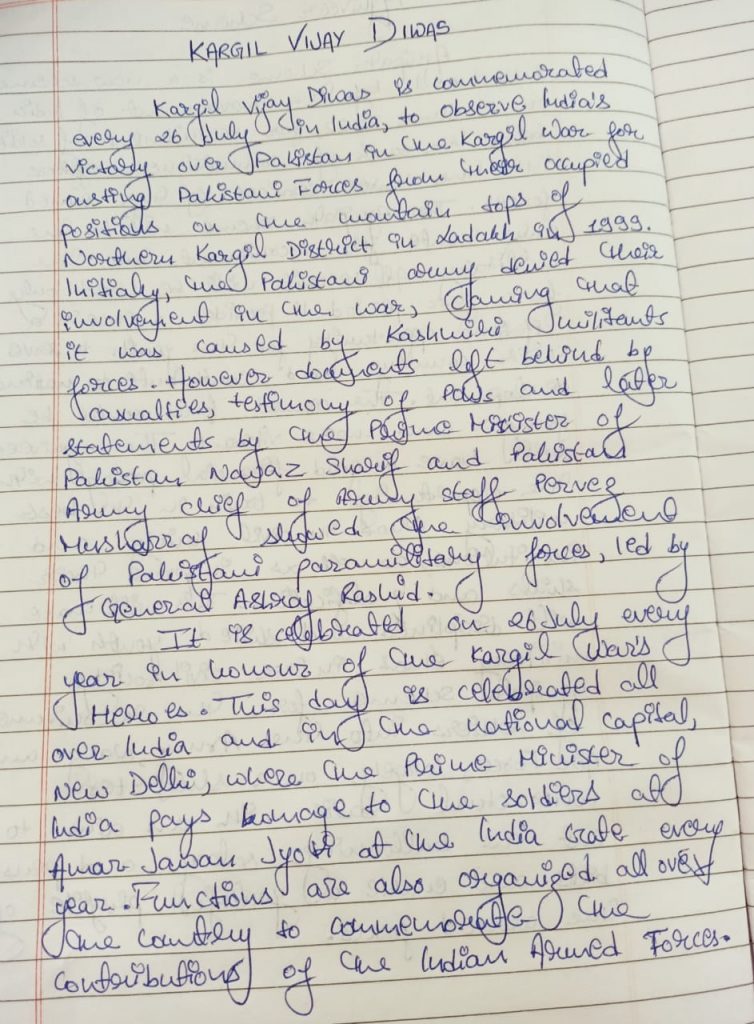 KARGIL VIJAY DIWAS
Kargil Vijay Diwas is commemorated
every 26 July in India, to observe India's
victory over Pakistan in the Kargil War for
ousting Pakistani Forces from their occupied
positions on the mountain tops of
Northern Kargil District in Ladakh in 1999.
Initialy, the Pakistani army denied their
involvement in the war, claming that
it was caused by Kashmiri militants
forces. However documents left behind by
casualties, testimony of POWs and later
statements by the Prime Minister of
Pakistan Nawaz Sharif and Pakistan
Army chief of Army staff Pervez
Musharraf showed the involvement
of Pakistani paramilitary forces, led by
General Ashraf Rashid.
It is celebrated on 26 July every
year in honour of the Kargil War's
Heroes. This day is celebrated all
over India and in the national capital,
New Delhi, where the Prime Minister of
India pays homage to the soldiers at
Amar Jawan Jyoti at the India Gate every
year. Functions are also organized all over
the country to commemorate the
contributions of the Indian Armed Forces.